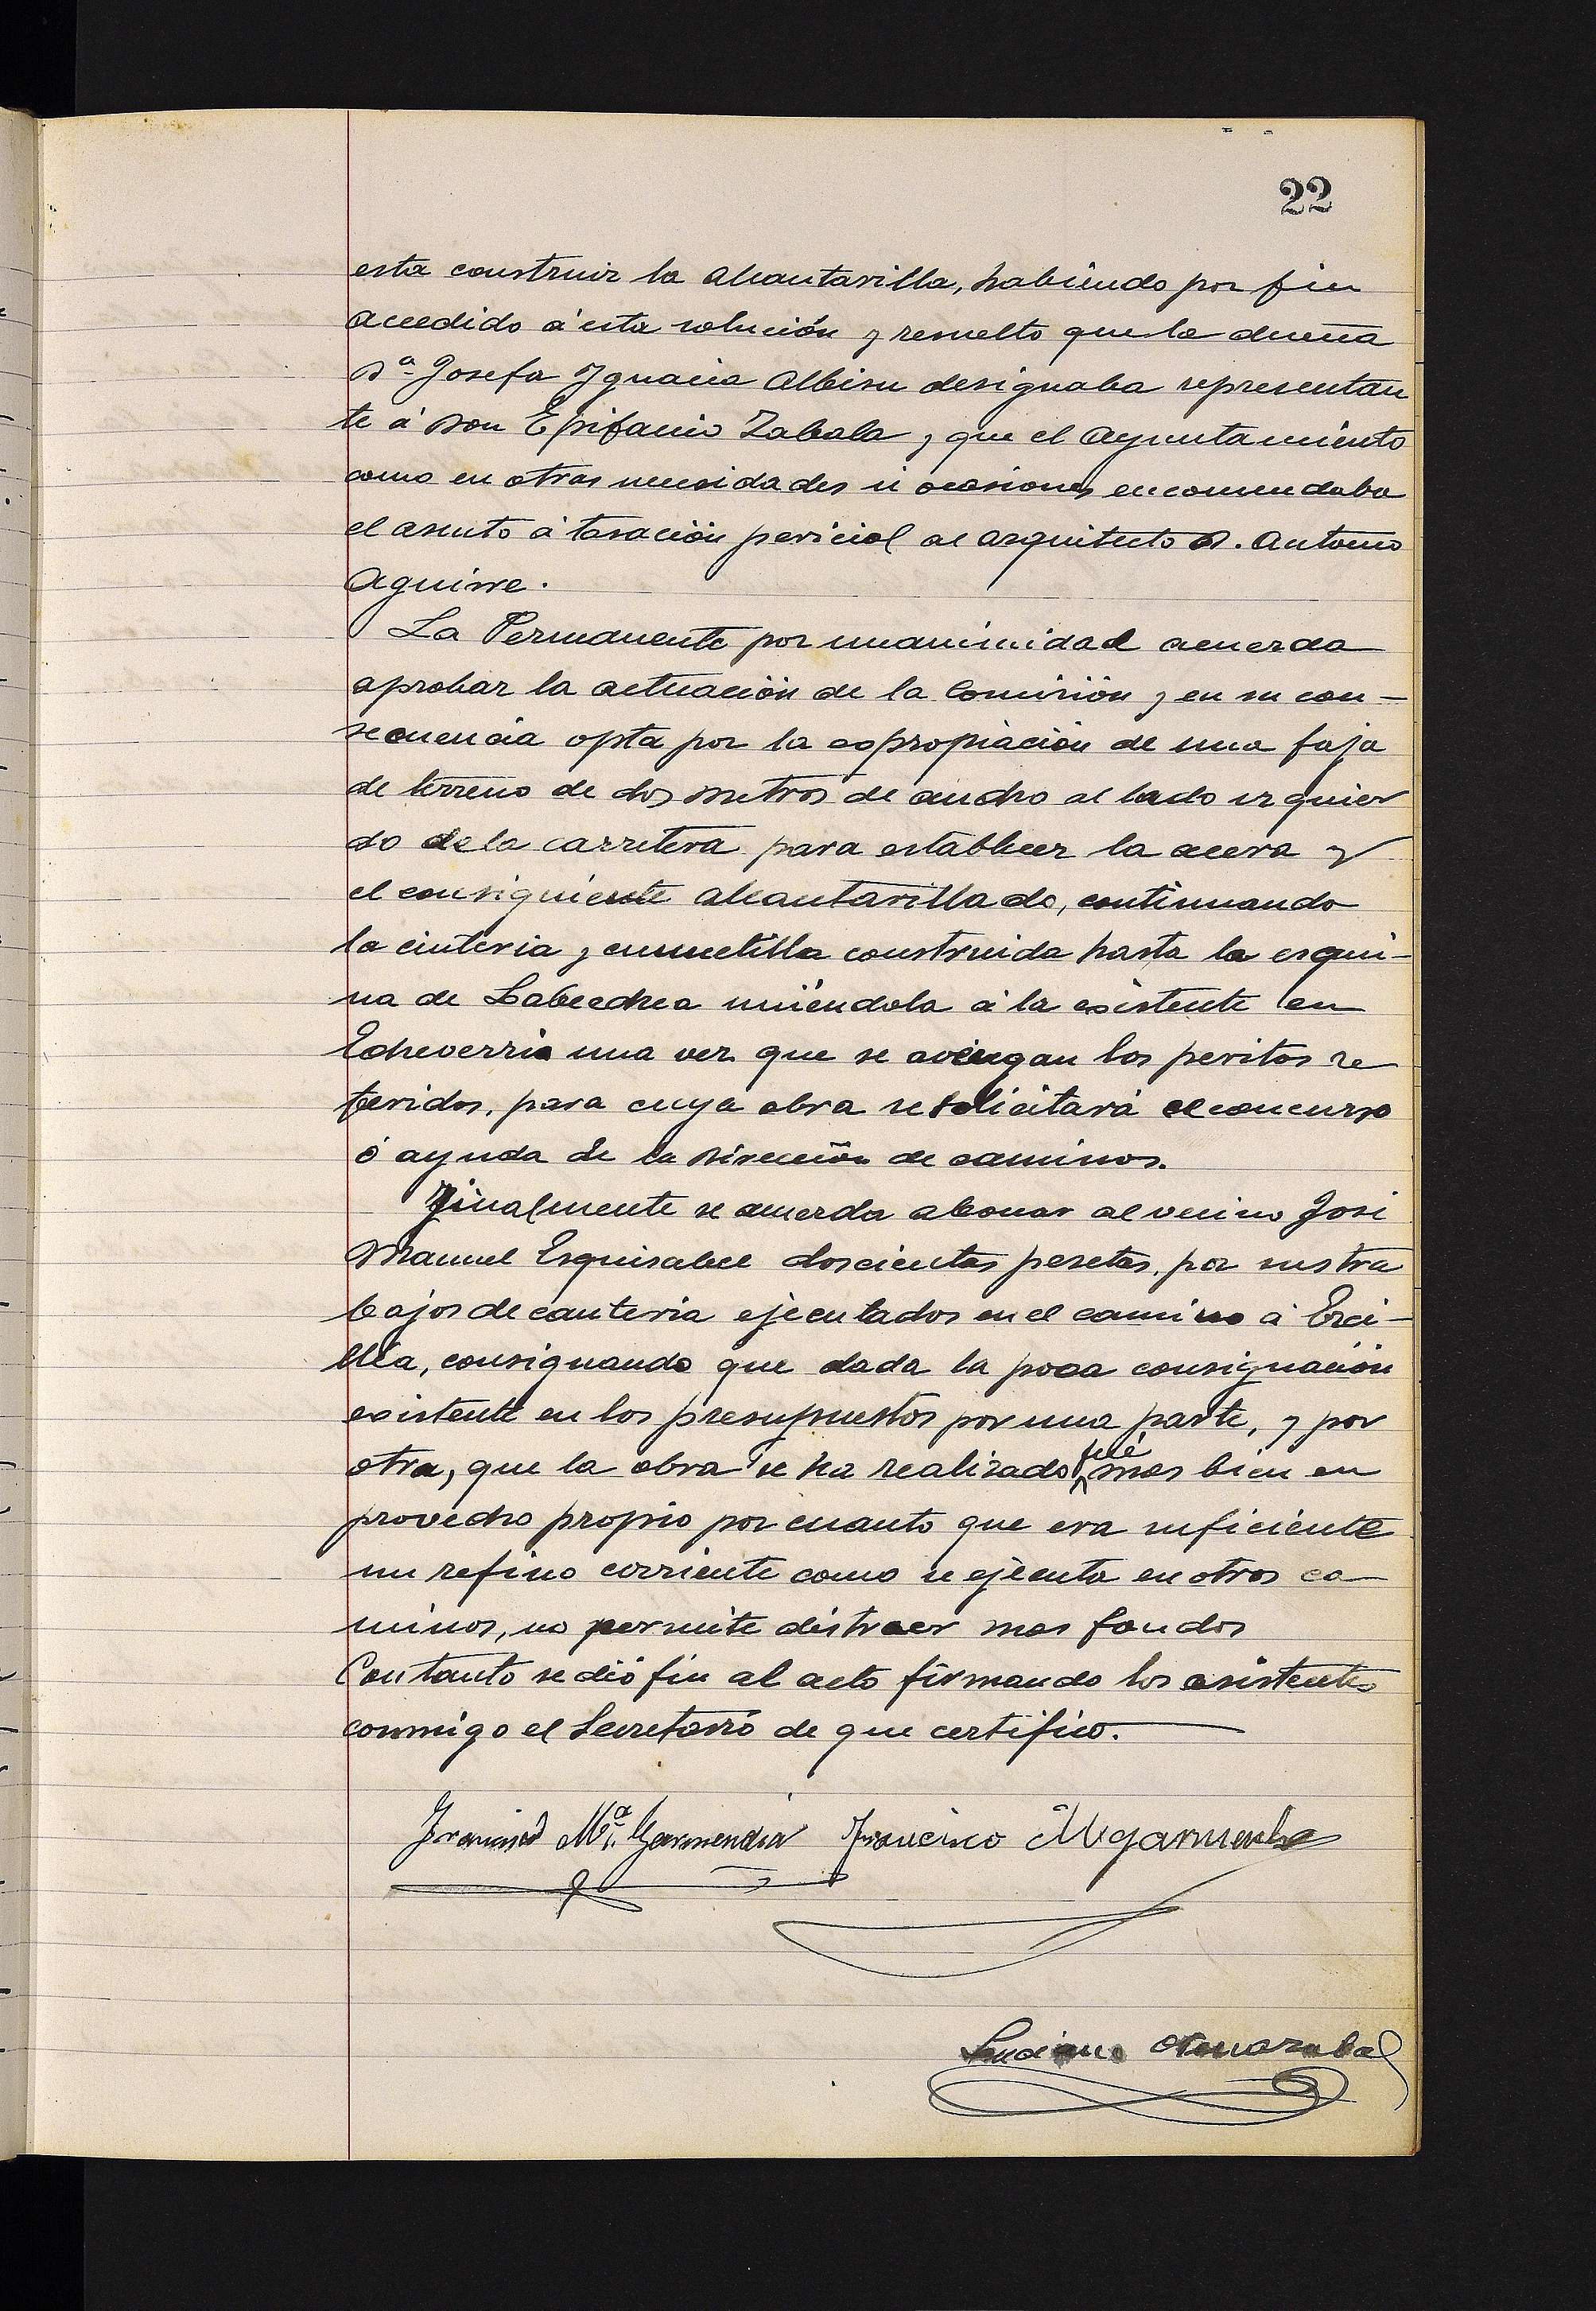 22
esta construir la alcantarilla, habiendo por fin
accedido á esta solución y resuelto que la dueña
Dª Josefa Ygnacia Albisu designaba representan
te á Don Epifanio Zabala y que el Ayuntamiento
como en otras necesidades ú ocasiones encomendaba
el asunto á tasación pericial al arquitecto D. Antonio
Aguirre.
La Permanente por unanimidad acuerda
aprobar la actuación de la Comisión y en su con-
secuencia opta por la expropiación de una faja
de terreno de dos metros de ancho al lado izquier
do de la carretera para establecer la acera y
el consiguiente alcantarillado, continuando
la cinteria y cunetilla construida hasta la esqui-
na de Labeechea uniéndola á la existente en
Echeverria una vez que se avengan los peritos re
feridos, para cuya obra se solicitará el concurso
ó ayuda de la Dirección de caminos.
Finalmente se acuerda abonar al vecino José
Manuel Esquisabel doscientas pesetas, por sus tra
bajos de canteria ejecutados en el camino á Erci-
lla, consignando que dada la poca consignación
existente en los presupuestos por una parte, y por
otra, que la obra se ha realizado fué mas bien en
provecho propio por cuanto que era suficiente
un refino corriente como se ejecuta en otros ca
minos, no permite distraer mas fondos
Con tanto se dió fin al acto firmando los asistentes
conmigo el Secretario de que certifico.
Francisco Mª Garmendia Francisco Mugarmendia
Luciano